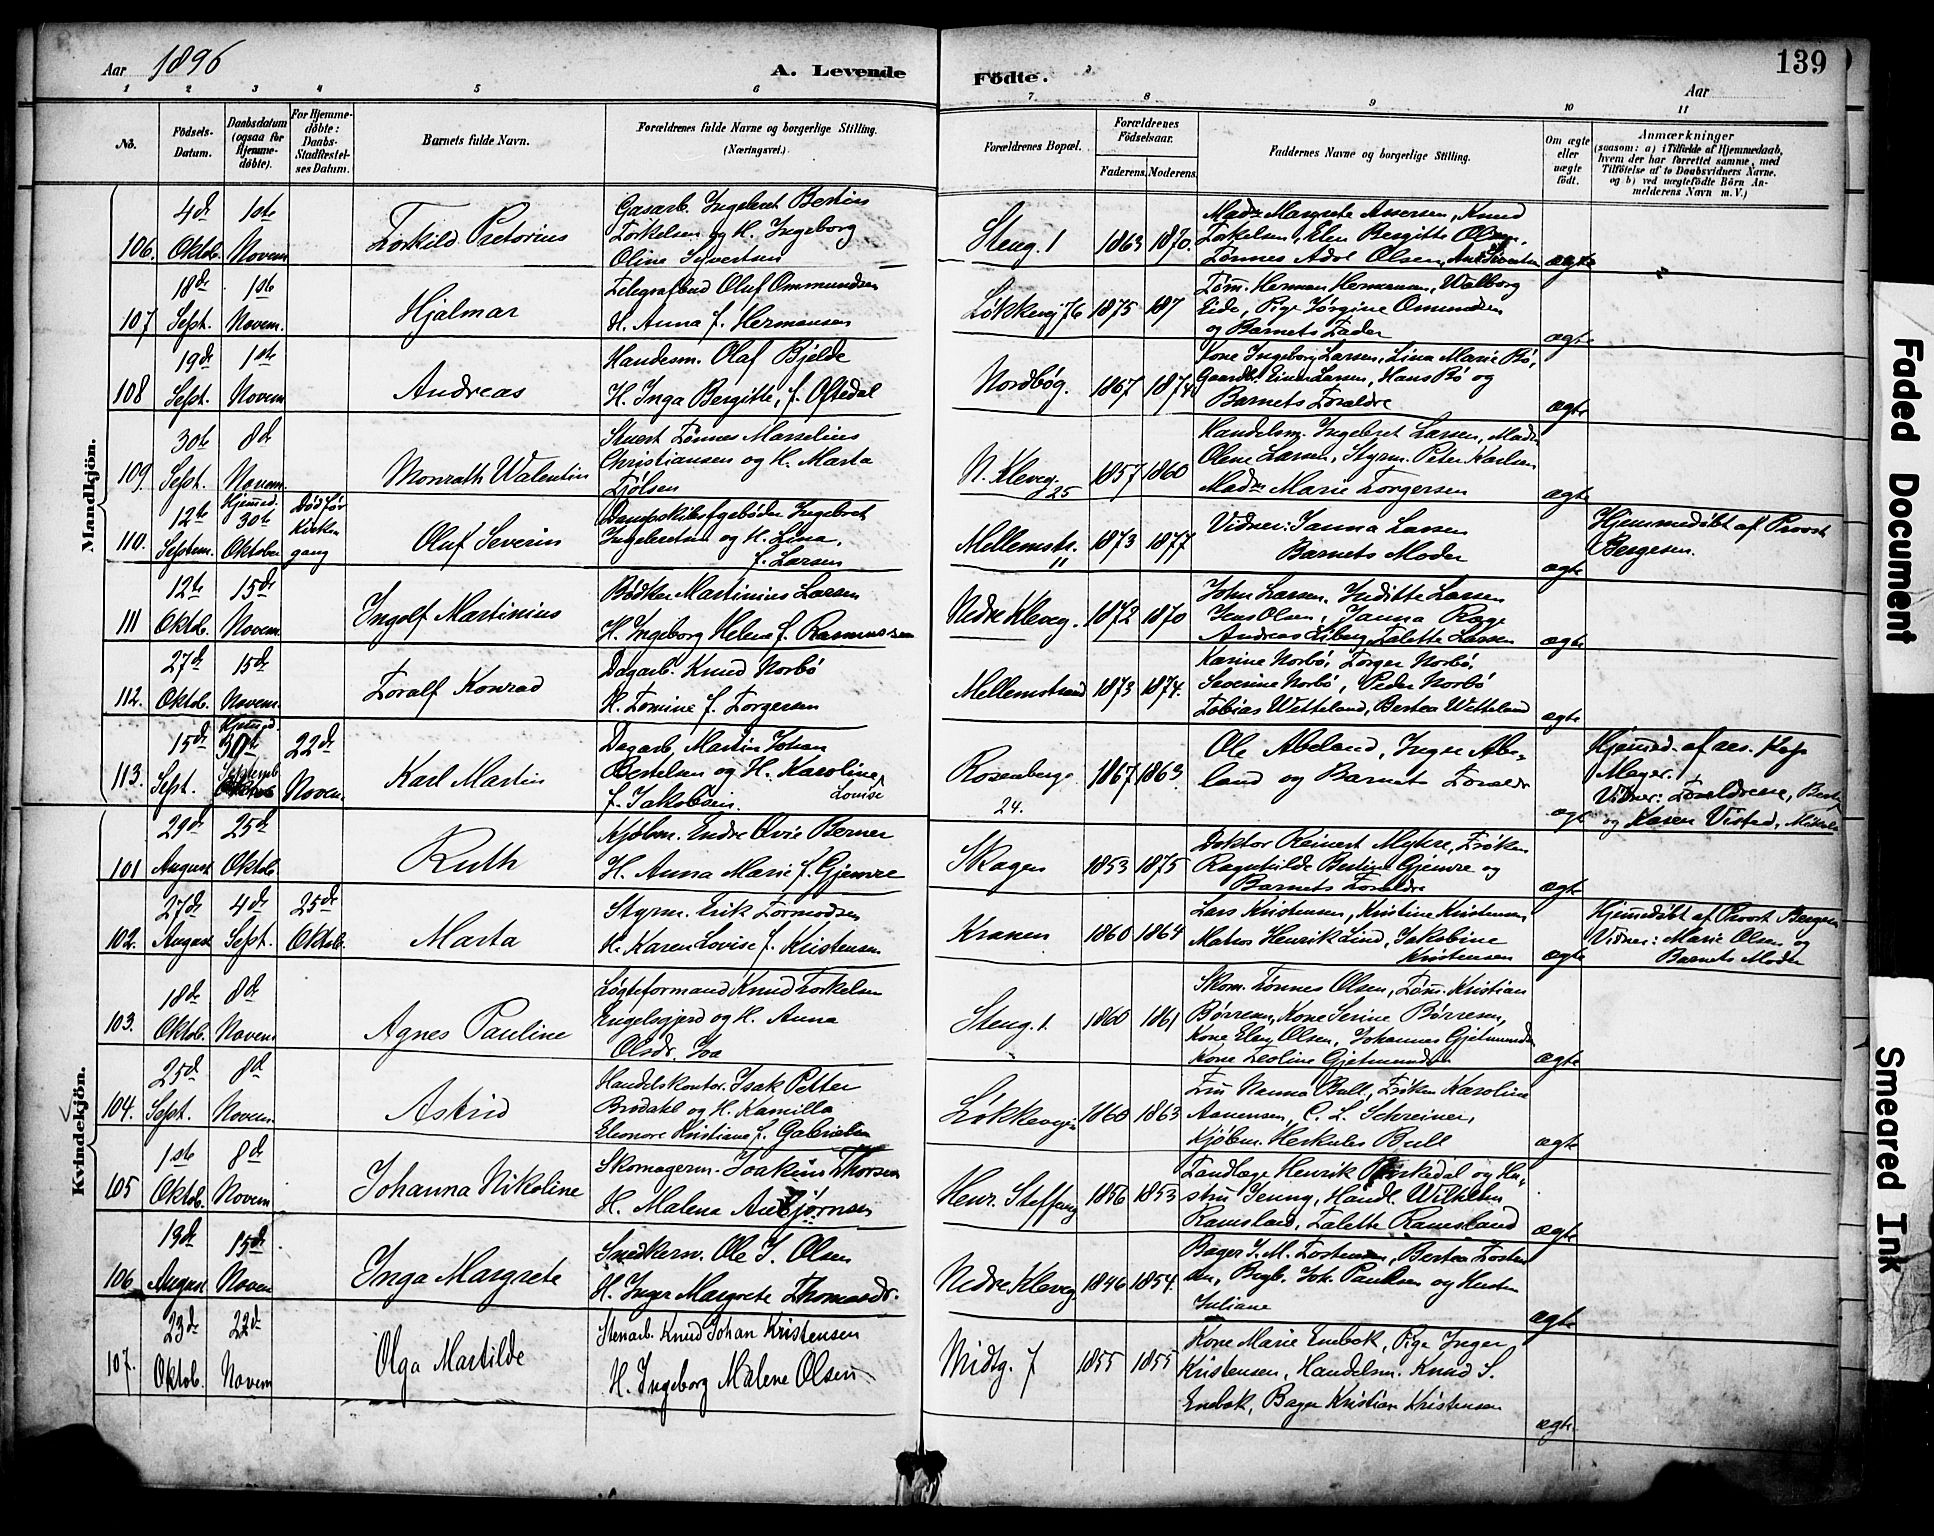 Aar 1896
A. Levende
Födte.
139
Aar
1 2 3 4 5 6 7 8 9 10 11
No.
Födsels-Datum.
Daabsdatum (ogsaa for Hjemme-döbte).
For Hjemme-döbte: Daabs-Stadfæstel-ses Datum.
Barnets fulde Navn.
Forældrenes fulde Navne og borgerlige Stilling. (Næringsvei.)
Forældrenes Bopæl.
Forældrenes Födselsaar.
Faderens. Moderens.
Faddernes Navne og borgerlige Stilling.
Om ægte eller uægte födt.
Anmærkninger
(saasom: a) i Tilfælde af Hjemmedaab,
hvem der har forrettet samme, med
Tilföielse af to Daabsvidners Navne,
og b) ved uægtefödte Börn An-
melderens Navn m. V.)
Mandkjön.
106. 4de Oktob. 1ste Novem.
Torkild Pretorius
Gasarb. Ingebret Bertin
Torkelsen og H. Ingeborg
Oline Syvertsen
Steng. 1 1863 1870.
Madm Margrete Assersen, Knud
Torkelsen, Elen Bergitte Olsen,
Tønnes Adol Olsen,
ægte
107 18de Sept. 1ste Novem.
Hjalmar
Telegrafbud Oluf Ommundsen
H. Anna f. Hermansen
Løkkevej 76 1875 187
Tøm. Herman Hermansen, Walborg
Eide, Pige Jørgine Omundsen
og Barnets Fader
ægte
108 19de Sept. 1ste Novem
Andreas
Handesm. Olaf Bjelde
H. Inga Bergitte, f. Oftedal
Nordbøg. 1867 1874
Kone Ingeborg Larsen, Lina Marie Bö,
Gaardb. Einar Larsen, Hans Bö og
Barnets Forældre
ægte
109 30te Sept. 8de Novem.
Monrath Walentin
Stuert Tønnes Marselius
Christiansen og H. Marta
Tjølsen
N. Kleveg. 25 1857 1860
Handelsm. Ingebret Larsen, Madm
Olene Larsen, Styrm. Peter Karlsen
Madm Marie Torgersen
ægte
110. 12te Septem. Hjemmed. 30te Oktober Død før Kirkegang
Oluf Severin
Dampskibsfyrbøder Ingebret
Ingebretsen og H. Lina,
f. Larsen
Mellemstr. 11 1873 1877
Vidner: Janna Larsen
Barnets Moder
ægte
Hjemmedöbt af Provst
Bergesen.
111 12te Oktob. 15de Novem.
Ingolf Martinius
Bødker Martinius Larsen
H. Ingeborg Helene f. Rasmussen
Nedre Kleveg. 1872 1870
John Larsen, Juditte Larsen
Jens Olsen, Janna Rage
Andreas Liberg, Talette Larsen
ægte
112. 27de Oktob. 15de Novem.
Toralf Konrad
Dagarb. Knud Norbö
H. Tomine f. Torgersen
Mellemstrand 1873 1874.
Karine Norbö, Torger Norbö,
Severine Norbö, Peder Norbö
Tobias Wetteland, Bertea Wetteland
ægte
113. 15de Sept. Hjemmed. 30te Septemb 22de Novem.
Karl Martin
Dagarb. Martin Johan
Bertelsen og H. Karoline Lovise
f. Jakobsen.
Rosenberg. 24. 1867 1863
Ole Abeland, Inger Abe-
land og Barnets Forældre
ægte
Hjemmed. af res. Kap
Meyer.
Vidner: Forældrene,
og Karen Visted,
Kvindekjön.
101 29de August 25de Oktob.
Ruth
Kjøbm. Endre Qvie Berner
H. Anna Marie f. Gjemre
Skagen 1853 1875
Doktor Reinert Mykre, Frøken
Ragnhilde Bertine Gjemre og
Barnets Forældre
ægte
102. 27de August 4de Sept. 25de Oktob.
Marta
Styrm. Erik Tormodsen
H. Karen Lovise f. Kristensen
Kranen 1860 1864
Lars Kristensen, Kristine Kristensen
Matros Henrik Lind, Jakobine
Kristensen
ægte
Hjemmedöbt af Provst Bergesen
Vidner: Marie Olsen og
Barnets Moder
103. 18de Oktob. 8de Novem
Agnes Pauline
Løgteformand Knud Torkelsen
Engelsgjerd og H. Anna
Olsdr. Ioa
Steng. 1. 1860 1861
Skom. Tønnes Olsen, Tøm. Kristian
Børresen, Kone Serine Børresen,
Kone Elen Olsen, Johannes Gjetmundsen
Kone Teoline Gjetmundsen
ægte
104. 25de Sept. 8de Novem.
Astrid
Handelskontor. Isak Petter
Brodahl og H. Kamilla
Eleonore Kristiane f. Gabrielsen
Løkkevejen 1860 1863
Fru Nanna Bull, Frøken Karoline
Aanensen, C. L. Schreiner,
Kjøbm. Herkules Bull
ægte
105 1ste Oktob. 8de Novem
Johanna Nikoline
Skomagerm. Joakim Thorsen
H. Malena Anbjørnsen
Henr. Steffang 1856 1853
Tandlæge Henrik Birkedal og Hu-
stru Jenny, Handl. Wilhelm
Ramsland, Talette Ramsland
ægte
106 19de August 15de Novem
Inga Margrete
Snedkersv. Ole J. Olsen
H. Inger Margrete Thomasdr.
Nedre Kleveg. 1846 1854.
Bager J. M. Tostensen, Bertea Tosten
sen, Bogb. Joh. Paulsen og Hustru
Juliane
ægte
107. 23de Oktob. 22de Novem
Olga Martilde
Stenarb. Knud Johan Kristensen
H. Ingeborg Malene Olsen
Midtg. 7 1855 1855
Kone Marie Enebok, Pige Inger
Kristensen, Handelsm. Knud S.
Enebok, Bager Kristian Kristensen
ægte.
Faded Document
Smeared Ink